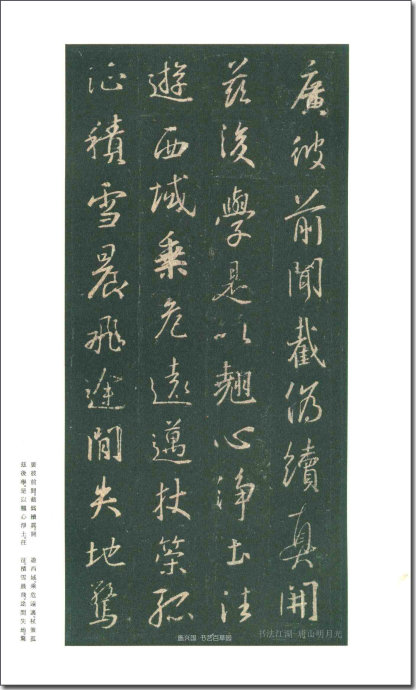 廣彼前聞截偽續真開
茲後學是以翹心淨土往
遊西域乘危遠邁杖策孤
征積雪晨飛途閒失地驚
廣彼前聞截偽續真開
茲後學是以翹心淨土往
遊西域乘危遠邁杖策孤
征積雪晨飛途閒失地驚
书艺百草园
书法江湖-眉山明月光